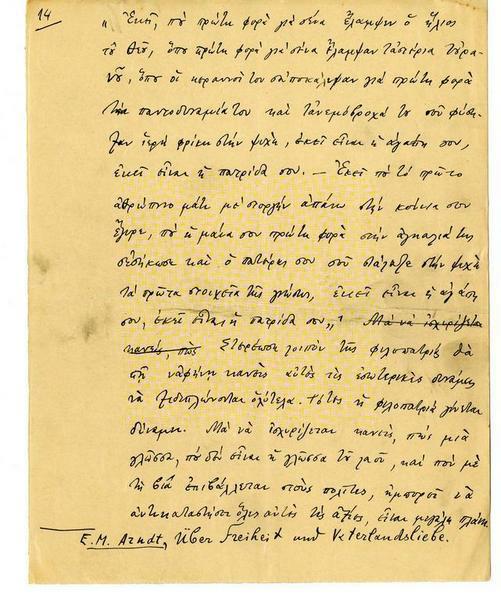 14
„ Ἐκεῖ, πὺ πρώτη φορὰ γιὰ σένα ἔλαμψεν ὁ ἥλιος
τȣ͂ Θεοῦ, ὅπου πρώτη φορὰ γιὰ σένα ἔλαμψαν τ' ἀστέρια τ' οὐρα-
νοῦ, ὅπου οἱ κεραυνοί του σ' ἀποκάλυψαν γιὰ πρώτη φορὰ
τὴν παντοδυναμία του καὶ τ' ἀνεμόβροχά του σοῦ φύση-
ξαν ἱερὴ φρίκη στὴν ψυχὴ, ἐκεῖ εἶναι ἡ ἀγάπη σου,
ἐκεῖ εἶναι ἡ πατρίδα σου. — Ἐκεῖ πὺ τὸ πρῶτο
ἀνθρώπινο μάτι μὲ στοργὴν ἀπάνω στὴν κούνια σου
ἔγυρε, πὺ ἡ μάνα σου πρώτη φορὰ στὴν ἀγκαλιά της
σὲ σήκωσε καὶ ὁ πατέρας σου σοῦ χάραξε στὴν ψυχὴ
τὰ πρῶτα στοιχεῖα τῆς γνώσης, ἐκεῖ εἶναι ἡ ἀγάπη
σου, ἐκεῖ εἶναι ἡ πατρίδα σου„ ¹ Μὰ νὰ ἰσχυρίζεται
κανεὶς, πὼς Στερέωση λοιπὸν τῆς φιλοπατρίας θὰ
πῆ νἀφήνη κανεὶς αὐτὲς τὶς ἐσωτερικὲς δυνάμεις
νὰ ξεδιπλώνονται ὁλότελα. Τότες ἡ φιλοπατρία γίνεται
δύναμη. Μὰ νὰ ἰσχυρίζεται κανεὶς, πὼς μιὰ
γλῶσσα, πὺ δὲν εἶναι ἡ γλῶσσα τοῦ λαοῦ, καὶ ποὺ μὲ
τὴ βία ἐπιβάλλεται στοὺς πολίτες, ἠμπορεῖ νὰ
ἀντικαταστήση ὅλες αὐτὲς τὶς ἀξίες, εἶναι μεγάλη πλάνη
E. M. Arndt, Über Freiheit und Vaterlandsliebe.